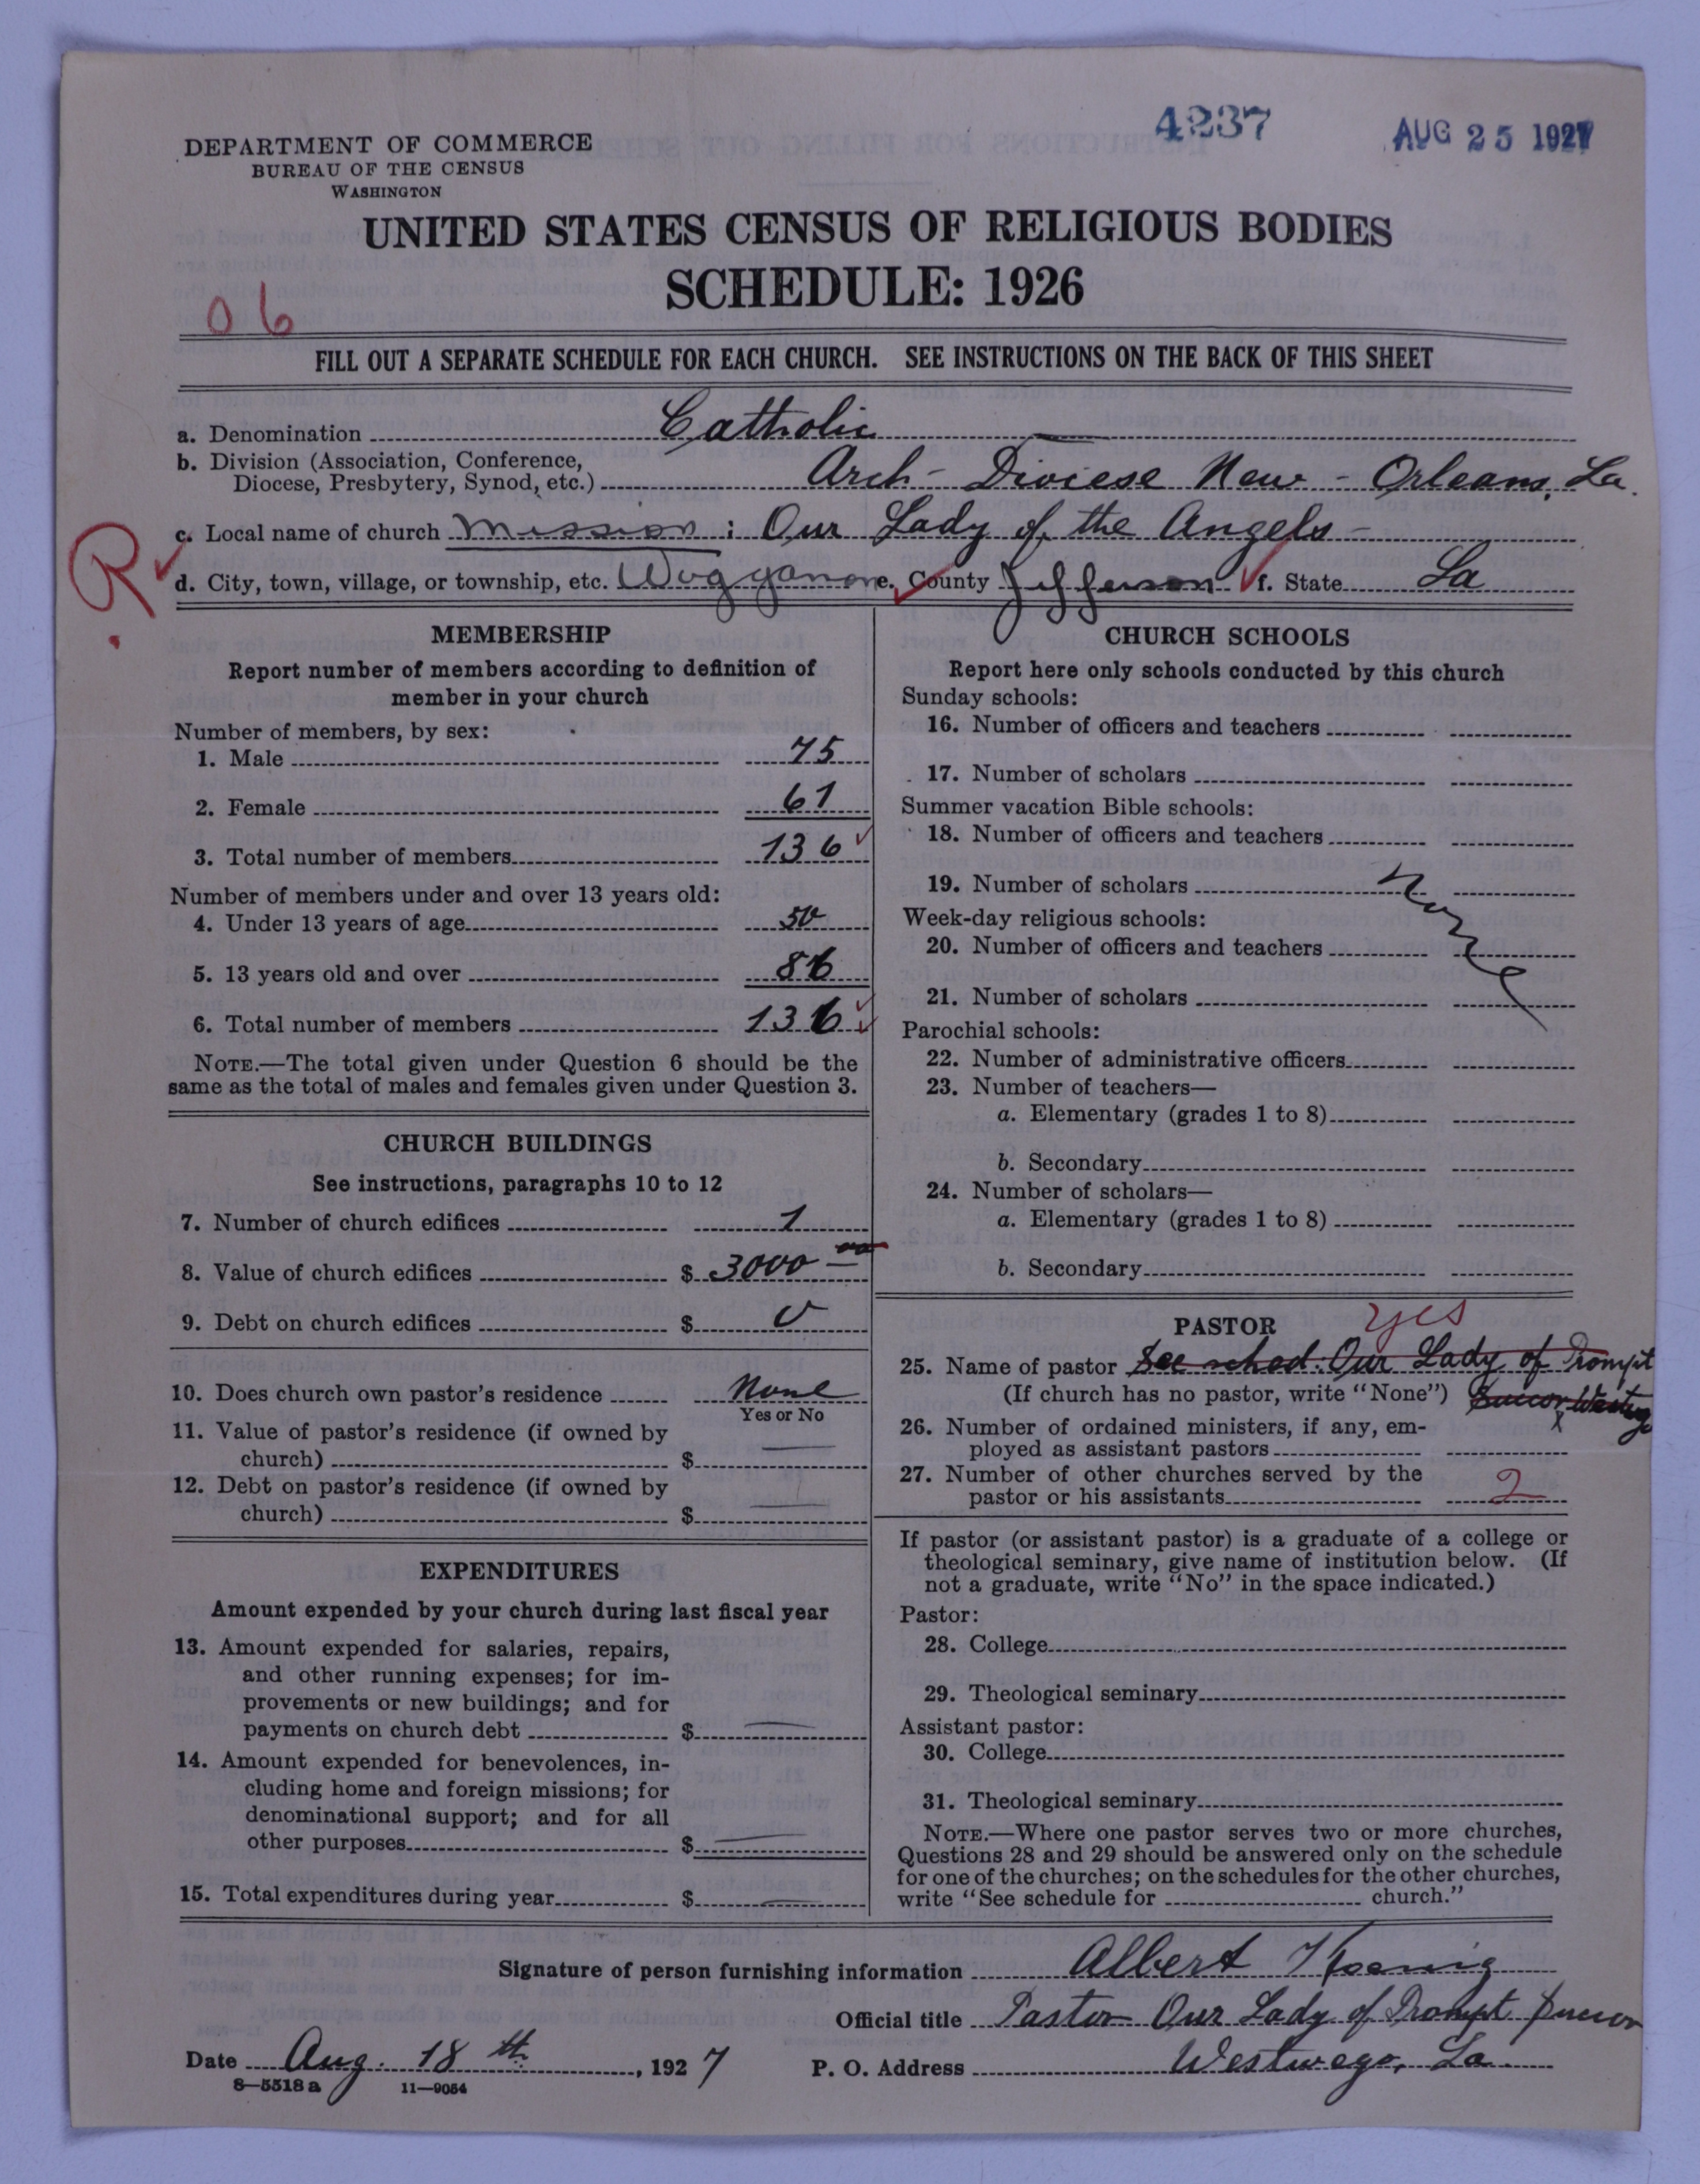 4237
AUG 25 1927
DEPARTMENT OF COMMERCE
BUREAU OF THE CENSUS
WASHINGTON
UNITED STATES CENSUS OF RELIGIOUS BODIES
SCHEDULE: 1926
06
FILL OUT A SEPARATE SCHEDULE FOR EACH CHURCH. SEE INSTRUCTIONS ON THE BACK OF THIS SHEET
a. Denomination Catholic
b. Division (Association, Conference,
Diocese, Presbytery, Synod, etc.) Arch - Diocese New - Orleans, La.
R
c. Local name of church Mission : Our Lady of the Angels -
d. City, town, village, or township, etc. Waggaman e. County Jefferson f. State La
MEMBERSHIP
Report number of members according to definition of
member in your church
Number of members, by sex:
1. Male 75
2. Female 61
3. Total number of members 136
Number of members under and over 13 years old:
4. Under 13 years of age 50
5. 13 years old and over 86
6. Total number of members 136
NOTE.—The total given under Question 6 should be the
same as the total of males and females given under Question 3.
CHURCH BUILDINGS
See instructions, paragraphs 10 to 12
7. Number of church edifices 1
8. Value of church edifices $ 3000 00
9. Debt on church edifices $ 0
10. Does church own pastor's residence None
Yes or No
11. Value of pastor's residence (if owned by
church) $ —
12. Debt on pastor's residence (if owned by
church) $ —
EXPENDITURES
Amount expended by your church during last fiscal year
13. Amount expended for salaries, repairs,
and other running expenses; for im-
provements or new buildings; and for
payments on church debt $ —
14. Amount expended for benevolences, in-
cluding home and foreign missions; for
denominational support; and for all
other purposes $ —
15. Total expenditures during year $ —
CHURCH SCHOOLS
Report here only schools conducted by this church
Sunday schools:
16. Number of officers and teachers
17. Number of scholars
Summer vacation Bible schools:
18. Number of officers and teachers
19. Number of scholars
None
Week-day religious schools:
20. Number of officers and teachers
21. Number of scholars
Parochial schools:
22. Number of administrative officers
23. Number of teachers—
a. Elementary (grades 1 to 8)
b. Secondary
24. Number of scholars—
a. Elementary (grades 1 to 8)
b. Secondary
PASTOR yes
25. Name of pastor See sched. Our Lady of Prompt
(If church has no pastor, write "None") Succor Westwego
26. Number of ordained ministers, if any, em-
ployed as assistant pastors x
27. Number of other churches served by the
pastor or his assistants 2
If pastor (or assistant pastor) is a graduate of a college or
theological seminary, give name of institution below. (If
not a graduate, write "No" in the space indicated.)
Pastor:
28. College
29. Theological seminary
Assistant pastor:
30. College
31. Theological seminary
NOTE.—Where one pastor serves two or more churches,
Questions 28 and 29 should be answered only on the schedule
for one of the churches; on the schedules for the other churches,
write "See schedule for church."
Signature of person furnishing information Albert Koenig
Official title Pastor Our Lady of Prompt Succor
Date Aug. 18th, 1927 P. O. Address Westwego, La.
8—5518 a 11—9054